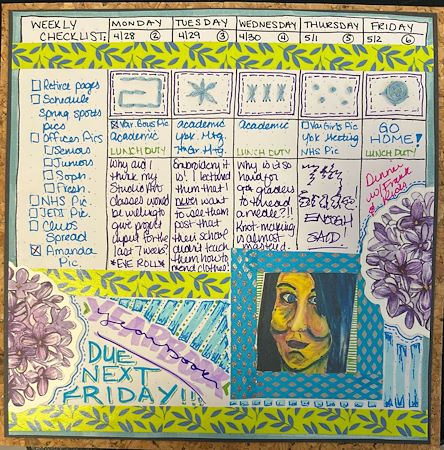 WEEKLY MONDAY TUESDAY WEDNESDAY THURSDAY FRIDAY
CHECKLIST: 4/28 ② 4/29 ③ 4/30 ④ 5/1 ⑤ 5/2 ⑥
Retire pages
Schedule
Spring sports
pics
Officer Pics
Seniors
Juniors
Soph
Fresh.
NHS Pic.
JEDI Pic.
Clubs
Spread
Amanda
Pic.
Var. Boys Pic
Academic
LUNCH DUTY
Why did I
think my
Studio Art
classes would
be willing to
give project
input for the
last 7 weeks?
*EYE ROLL*
Academic
Yrbk. Mtg.
LUNCH DUTY
Embroidery it
is! I lectured
them that I
never want
to see them
post that
their school
didn't teach
them how to
mend clothes!
Academic
LUNCH DUTY
Why is it so
hard for
graders
to thread
a needle?!!
Knot-making
is almost
mastered.
Var Girls Pic
Yrbk Meeting
NHS Pic
ENOUGH
SAID
GO
HOME!
LUNCH DUTY
Dinner
w/
yearbook
DUE
NEXT
FRIDAY!!!